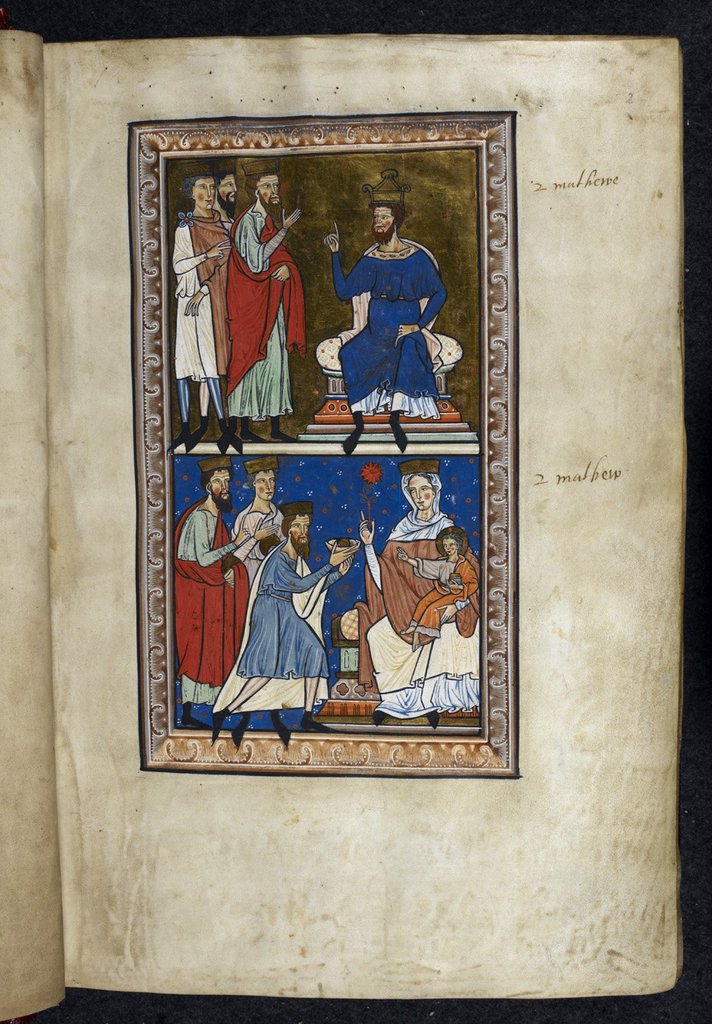 2
2 mathewe
2 mathew